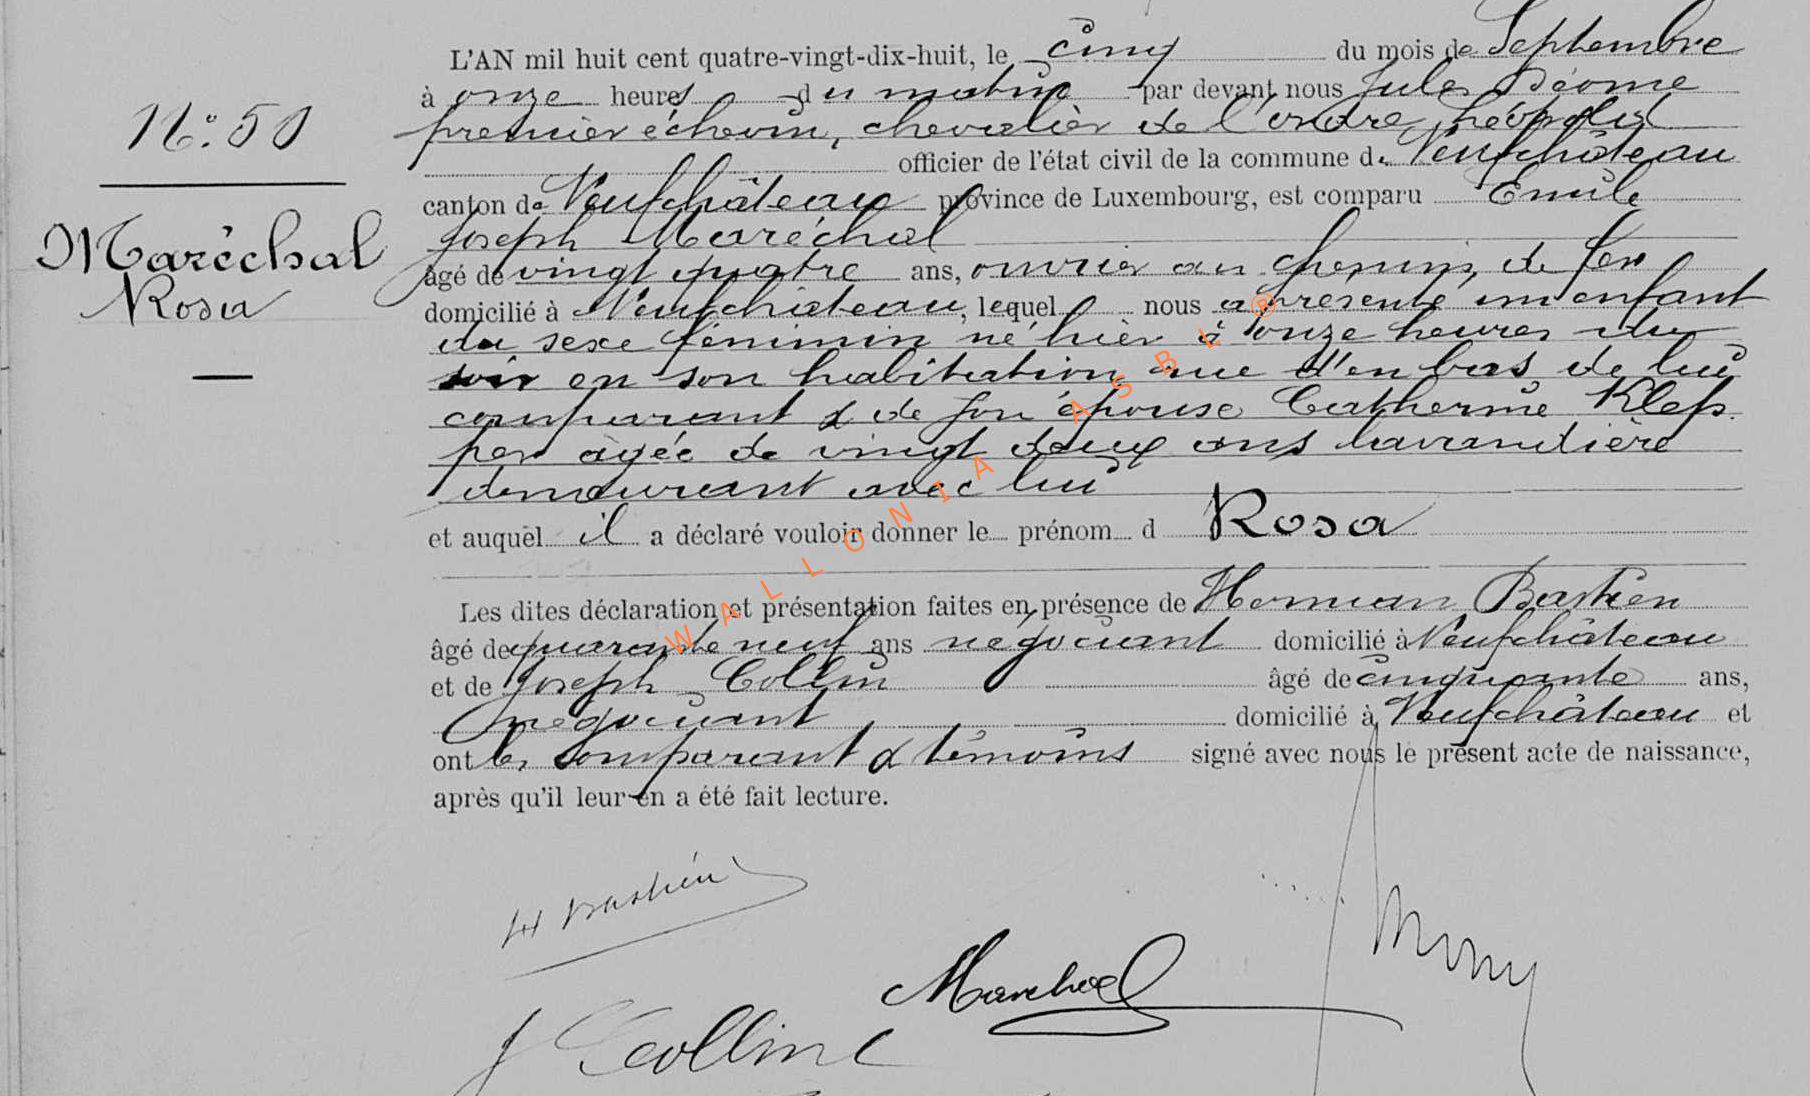 L'AN mil huit cent quatre-vingt-dix-huit, le cinq du mois de Septembre
à onze heures du matin par devant nous Jules Déome
premier échevin, chevalier de l'ordre Léopold
officier de l'état civil de la commune de Neufchâteau
N°. 50
canton de Neufchâteau province de Luxembourg, est comparu Emile
Joseph Maréchal
Maréchal
Rosa
âgé de vingt quatre ans, ouvrier au chemin de fer
domicilié à Neufchâteau, lequel nous a présenté un enfant
du sexe féminin né hier à onze heures du
soir en son habitation rue d'en bas de lui
comparant & de son épouse Catherine Klep
per âgée de vingt deux ans lavandière
demeurant avec lui
et auquel il a déclaré vouloir donner le prénom d Rosa
Les dites déclaration et présentation faites en présence de Herman Bastien
âgé de quarante neuf ans négociant domicilié à Neufchâteau
et de Joseph Collin âgé de cinquante ans,
négociant domicilié à Neufchâteau et
ont les comparant & témoins signé avec nous le présent acte de naissance,
après qu'il leur en a été fait lecture.
H Bastien
Marechal
J Collin
WALLONIA ASBL ®